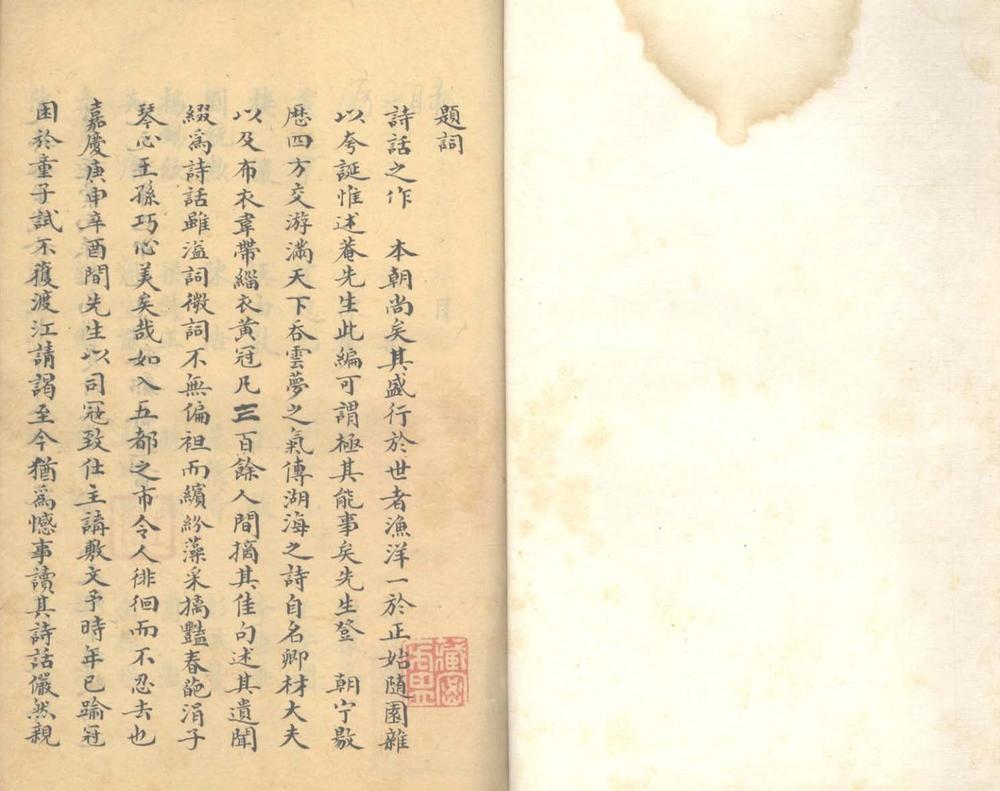 題詞
詩話之作　本朝尚矣其盛行於世者漁洋一於正始隨園雜
以夸誕惟述菴先生此編可謂極其能事矣先生登　朝宁敭
歷四方交游滿天下吞雲夢之氣傳湖海之詩自名卿材大夫
以及布衣韋帶緇衣黃冠凡三百餘人間摘其佳句述其遺聞
綴爲詩話雖溢詞微詞不無偏袒而繽紛藻采摛豔春葩涓子
琴心王孫巧心美矣哉如入五都之市令人徘徊而不忍去也
嘉慶庚申辛酉間先生以司冦致仕主講敷文予時年已踰冠
困於童子試不獲渡江請謁至今猶爲憾事讀其詩話儼然親